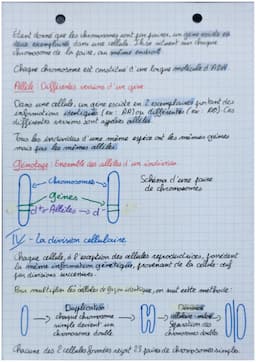 Etant donné que les chromosomes sont par paires, un gène existe en
deux exemplaires dans une cellule. Ils se situent sur chaque
chromosome de la paire, au même endroit
Chaque chromosome est constitué d'une longue molécule d'ADN
Allèle : Différentes versions d'un gène
Dans une cellule, un gène existe en 2 exemplaires portant des
informations identiques (ex : AA) ou différentes (ex : AO). Ces
différentes versions sont appelées allèles
Tous les individus d'une même espèce ont les mêmes gènes
mais pas les mêmes allèles.
Génotype : Ensemble des allèles d'un individu
Chromosomes
Schéma d'une paire
de chromosomes
Gènes
Allèles
IV - La division cellulaire
Chaque cellule, à l'exception des cellules reproductrices, possèdent
la même information génétique, provenant de la cellule-œuf
par divisions successives.
Pour multiplier les cellules de façon identique, on suit cette méthode :
Duplication
chaque chromosome
simple devient un
chromosome double
Division
cellulaire
Séparation des
chromosomes doubles
Chacune des 2 cellules formées reçoit 23 paires de chromosomes simples